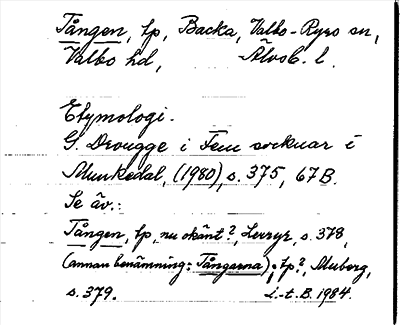 Tången, tp, Backa, Valbo-Ryrs sn,
Valbo hd, Älvsb. l.
Etymologi.
G. Drougge i Fem socknar i
Munkedal, (1980), s. 375, 67B.
Se äv.:
Tången, tp, nu okänt?, Levryr, s. 378,
(annan benämning: Tångarna); tp?, Muberg,
s. 379. L.-t. B. 1984.